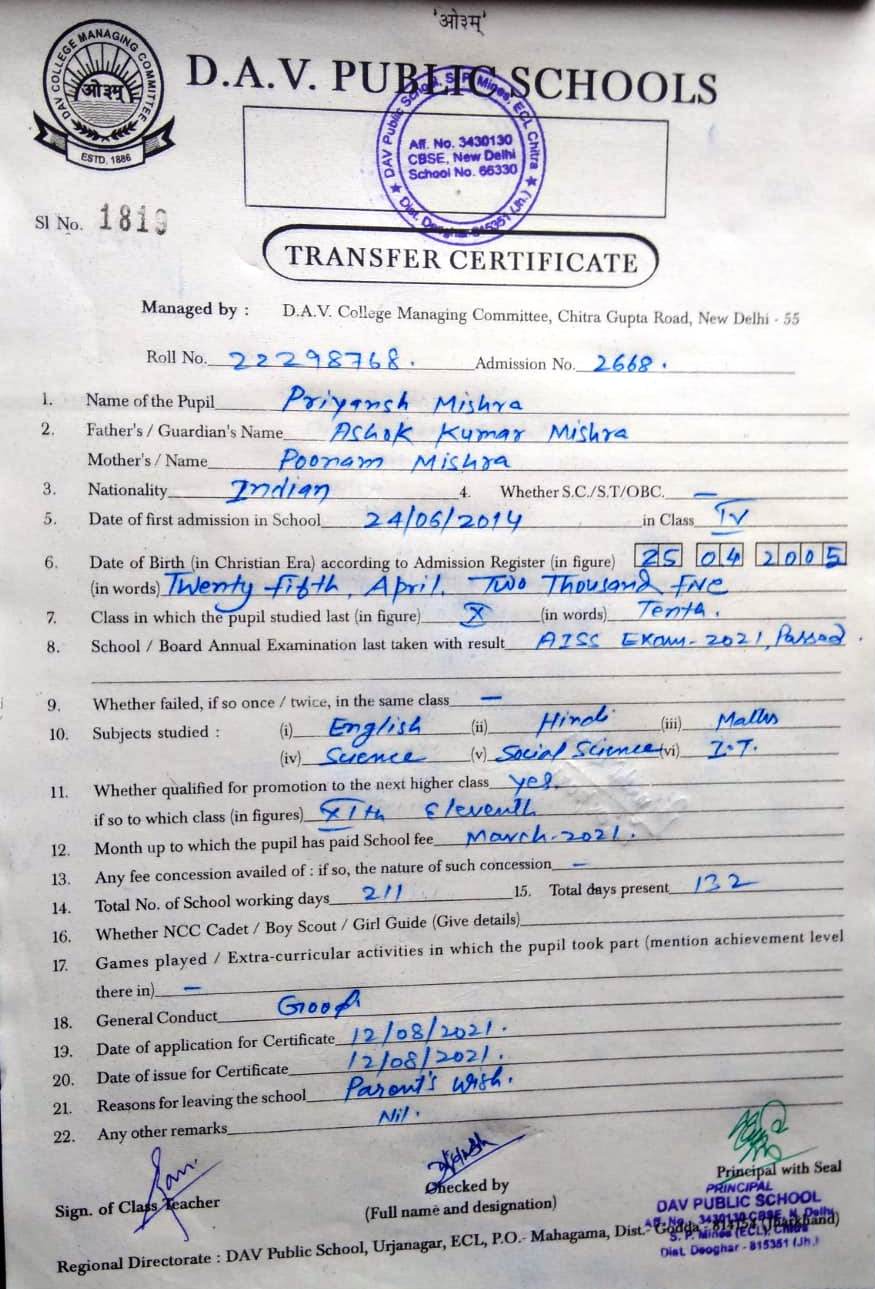 'ओ३म्'
DAV COLLEGE MANAGING COMMITTEE
ओ३म्
ESTD, 1886
D.A.V. PUBLIC SCHOOLS
DAV Public School, S. P. Mines, ECL Chitra
Aff. No. 3430130
CBSE, New Delhi
School No. 66330
Dist. Deoghar-815351 (Jh.)
Sl No. 1819
TRANSFER CERTIFICATE
Managed by : D.A.V. College Managing Committee, Chitra Gupta Road, New Delhi - 55
Roll No. 22298768. Admission No. 2668.
1. Name of the Pupil Priyansh Mishra
2. Father's / Guardian's Name Ashok Kumar Mishra
Mother's / Name Poonam Mishra
3. Nationality Indian 4. Whether S.C./S.T/OBC. —
5. Date of first admission in School 24/06/2014 in Class IV
6. Date of Birth (in Christian Era) according to Admission Register (in figure) 25 04 2005
(in words) Twenty fifth, April, Two Thousand five
7. Class in which the pupil studied last (in figure) X (in words) Tenth.
8. School / Board Annual Examination last taken with result AISS Exam-2021, Passed.
9. Whether failed, if so once / twice, in the same class —
10. Subjects studied : (i) English (ii) Hindi (iii) Maths
(iv) Science (v) Social Science (vi) I.T.
11. Whether qualified for promotion to the next higher class yes.
if so to which class (in figures) XIth Eleventh
12. Month up to which the pupil has paid School fee March-2021.
13. Any fee concession availed of : if so, the nature of such concession —
14. Total No. of School working days 211 15. Total days present 132
16. Whether NCC Cadet / Boy Scout / Girl Guide (Give details)
17. Games played / Extra-curricular activities in which the pupil took part (mention achievement level
there in) —
18. General Conduct Good
19. Date of application for Certificate 12/08/2021.
20. Date of issue for Certificate 12/08/2021.
21. Reasons for leaving the school Parent's wish.
22. Any other remarks Nil.
Sign. of Class Teacher
Checked by
(Full name and designation)
Principal with Seal
PRINCIPAL
DAV PUBLIC SCHOOL
Aff. No.- 3430130 CBSE, N. Delhi
S. P. Mines (ECL), Chitra
Dist. Deoghar - 815351 (Jh.)
Regional Directorate : DAV Public School, Urjanagar, ECL, P.O.- Mahagama, Dist.- Godda - 814154 (Jharkhand)